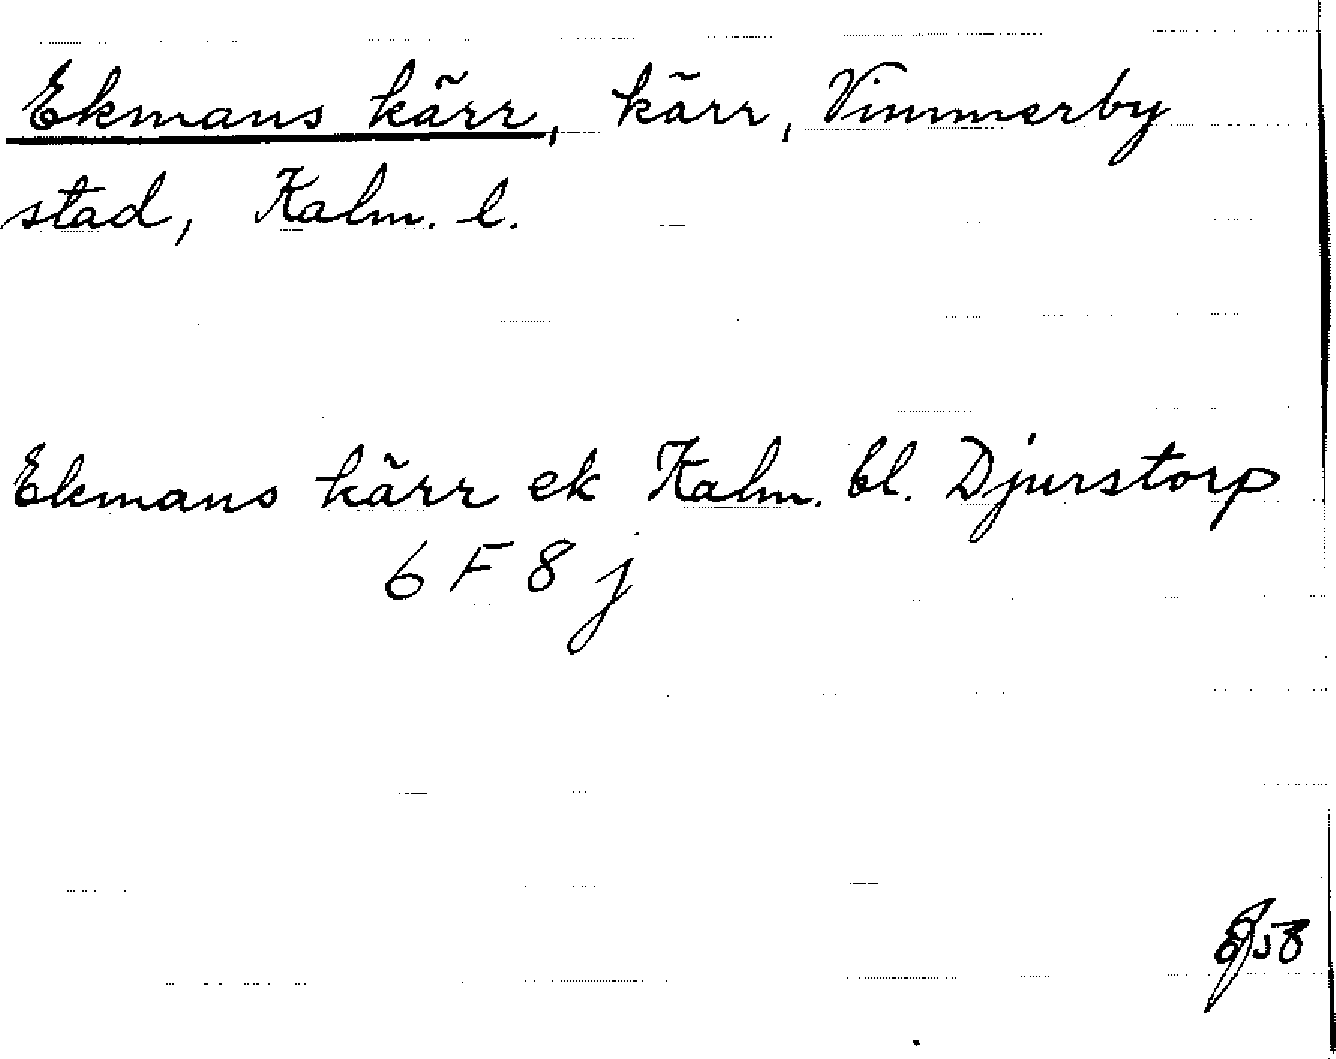 Ekmans kärr, kärr, Vimmerby
stad, Kalm. l.
Ekmans kärr ek Kalm. bl. Djurstorp
6 F 8 j